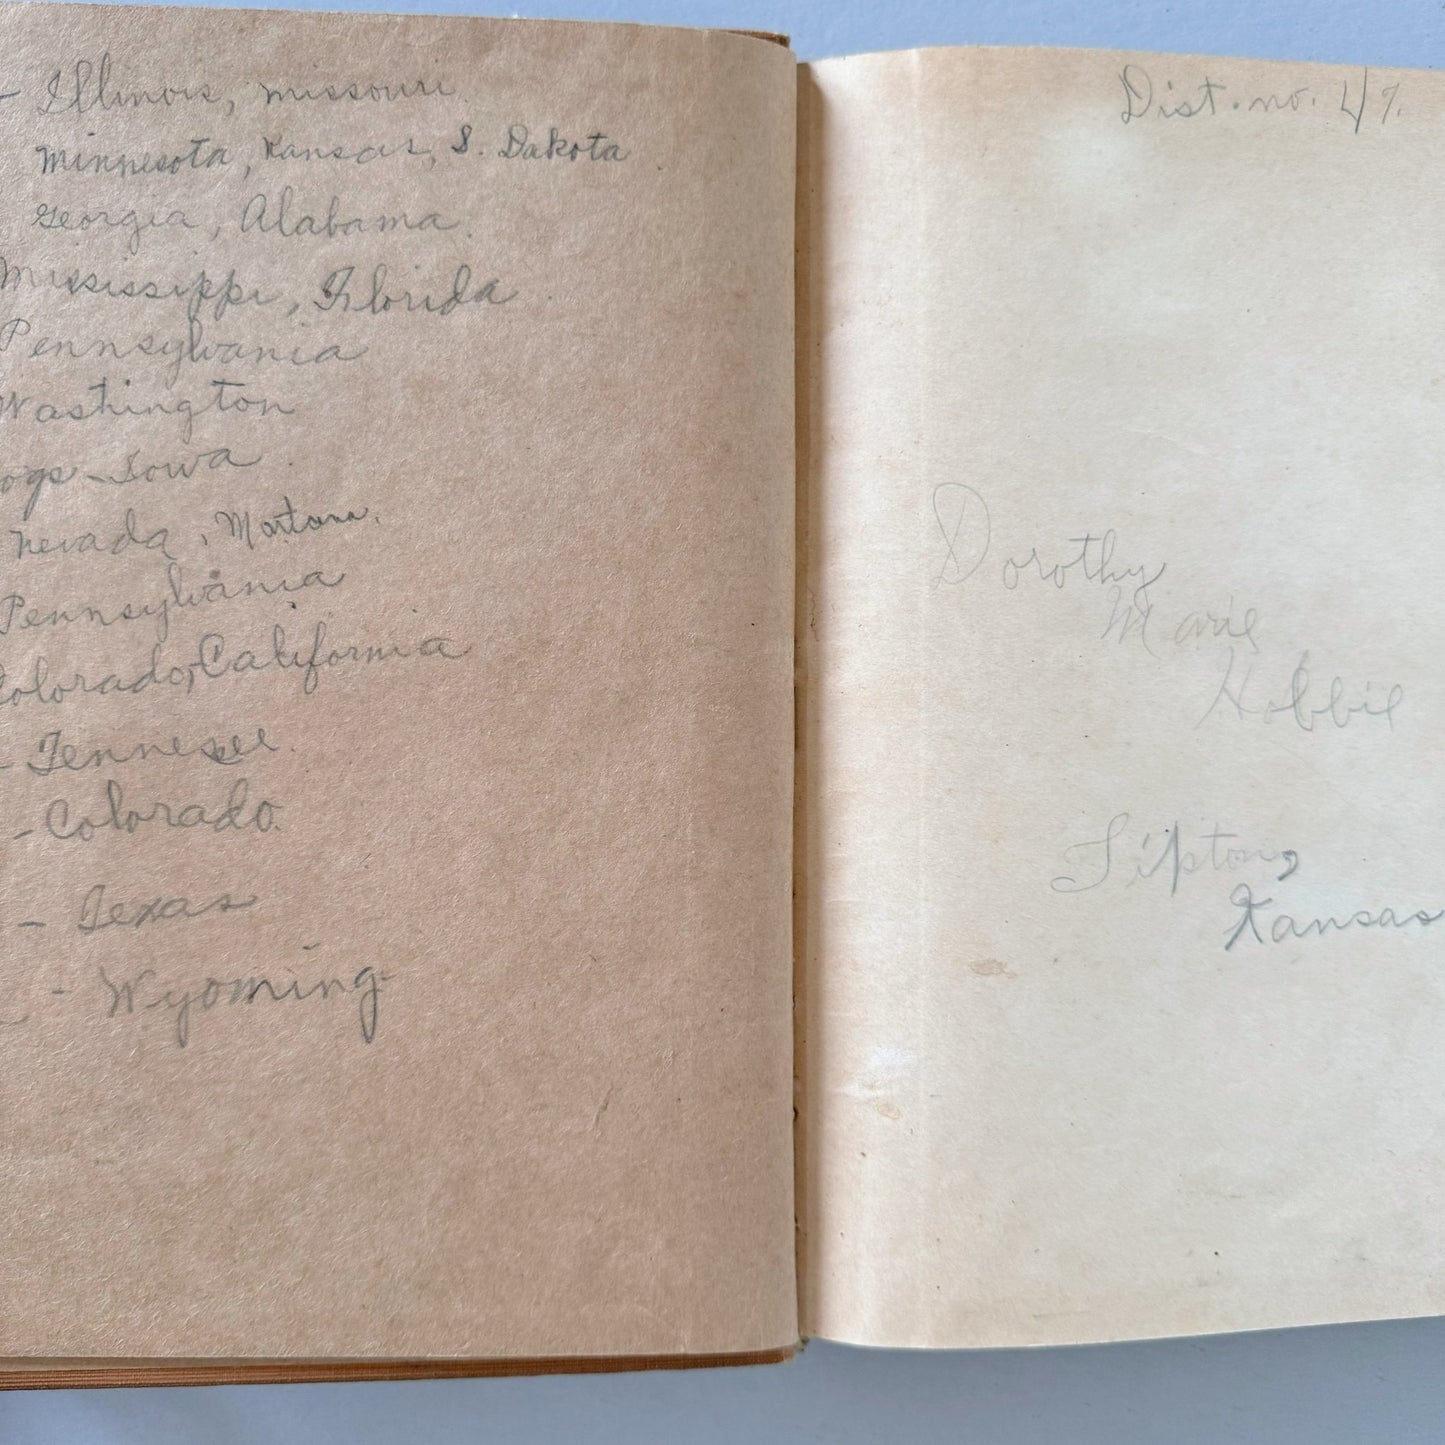 - Illinois, missouri.
Minnesota, Kansas, S. Dakota
Georgia, Alabama.
Mississippi, Florida.
Pennsylvania
Washington
ogs - Iowa.
Nevada, Montana.
Pennsylvania
Colorado, California
- Tennessee.
- Colorado.
- Texas
- Wyoming.
Dist. no. 47.
Dorothy
Marie
Hobbie
Tipton,
Kansas